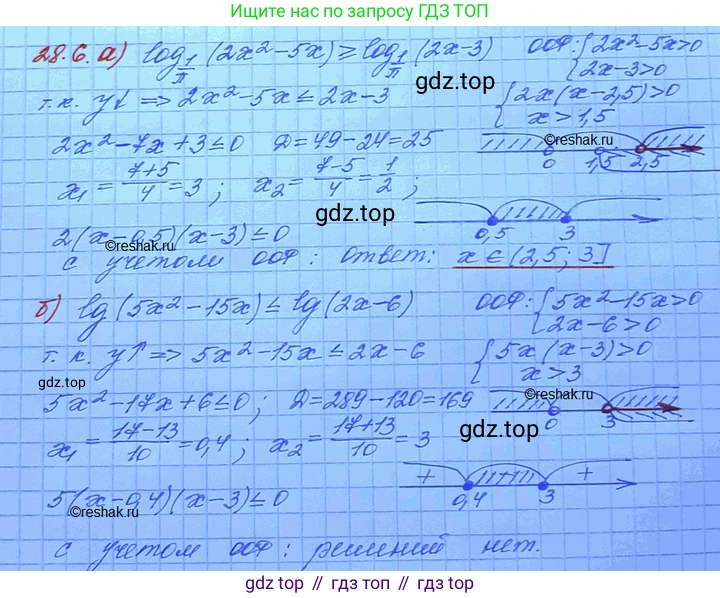 Ищите нас по запросу ГДЗ ТОП
28.6. а) log_{1/π} (2x²-5x) ≥ log_{1/π} (2x-3) ООФ: { 2x²-5x>0
2x-3>0
gdz.top
т.к. y↓ => 2x²-5x ≤ 2x-3 { 2x(x-2,5)>0
x>1,5
2x²-7x+3 ≤ 0 D=49-24=25 ©reshak.ru
0 1,5 2,5
x₁ = (7+5)/4 = 3; x₂ = (7-5)/4 = 1/2;
gdz.top
0,5 3
2(x-0,5)(x-3) ≤ 0
©reshak.ru
с учетом ООФ: ответ: x ∈ (2,5; 3]
б) lg(5x²-15x) ≤ lg(2x-6) ООФ: { 5x²-15x>0
2x-6>0
т.к. y↑ => 5x²-15x ≤ 2x-6 { 5x(x-3)>0
x>3
gdz.top
5x²-17x+6 ≤ 0, D=289-120=169 ©reshak.ru
0 3
x₁ = (17-13)/10 = 0,4; x₂ = (17+13)/10 = 3 gdz.top
+ + +
0,4 3
5(x-0,4)(x-3) ≤ 0
©reshak.ru
с учетом ООФ: решений нет.
gdz.top // гдз.топ // gdz.top